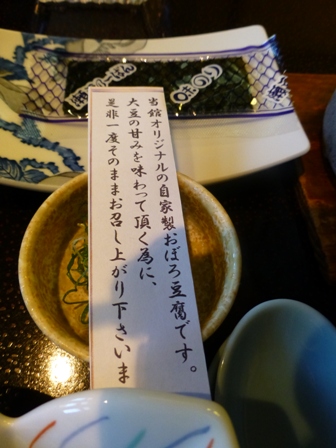 当館オリジナルの自家製おぼろ豆腐です。
大豆の甘みを味わって頂く為に、
是非一度そのままお召し上がり下さいま
味のり